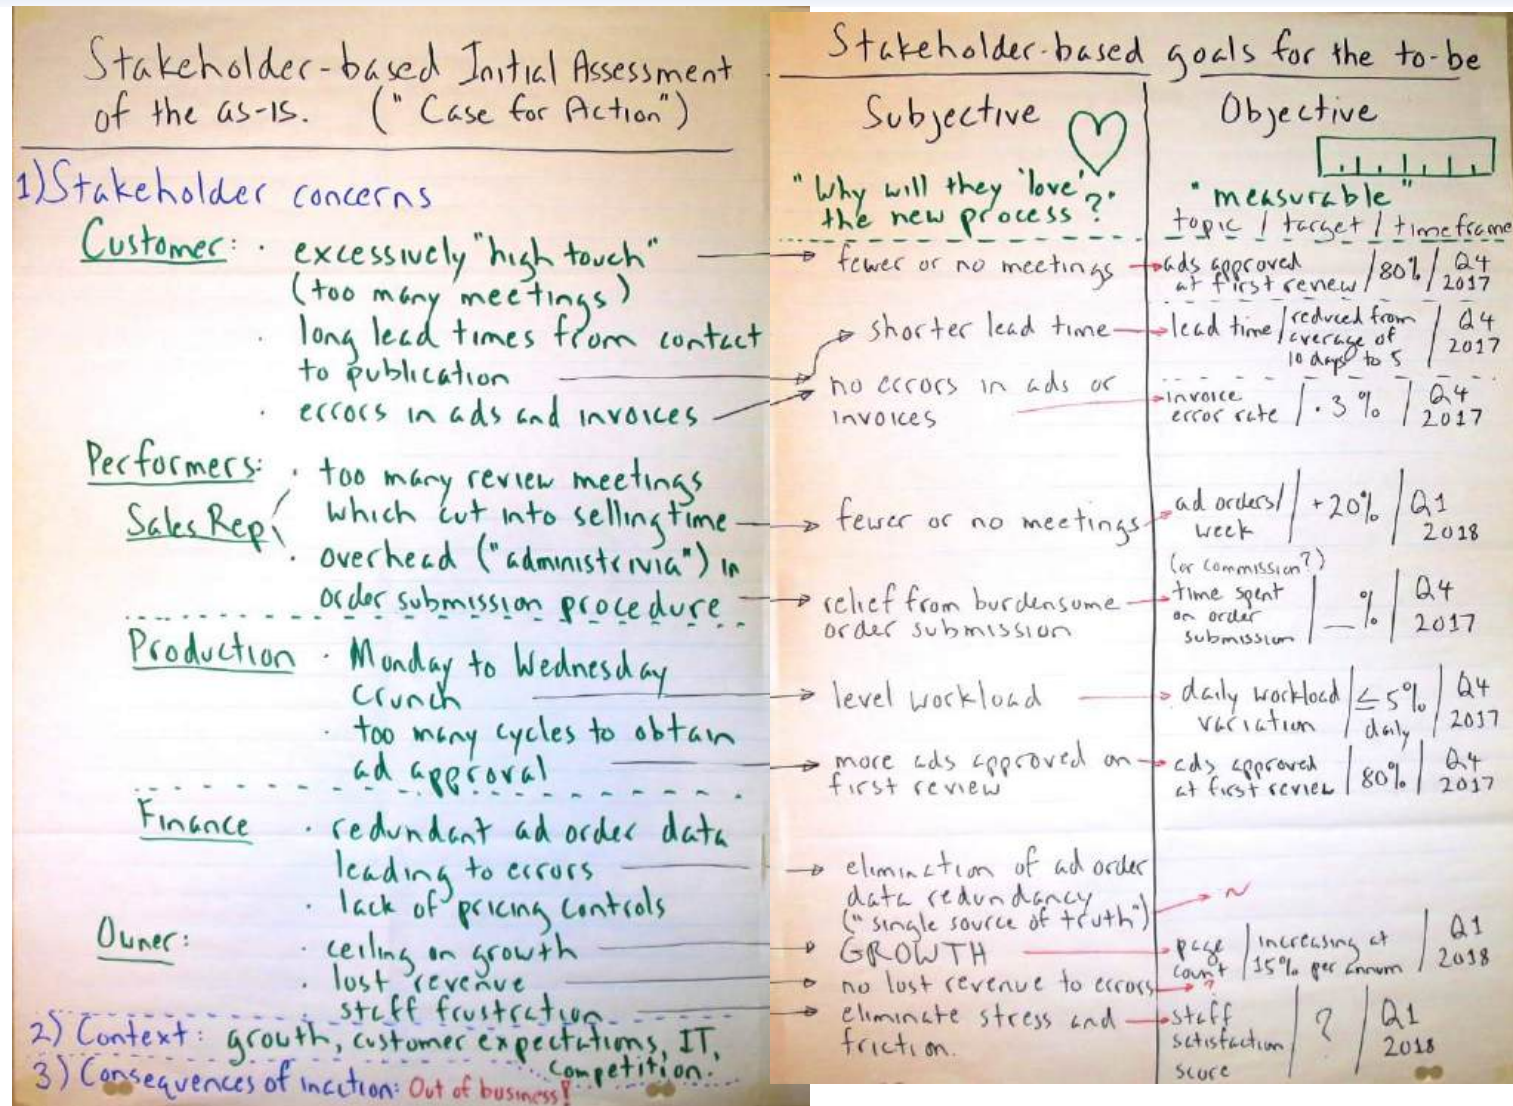 Stakeholder-based Initial Assessment
of the as-is. ("Case for Action")
1) Stakeholder concerns
Customer: · excessively "high touch"
(too many meetings)
· long lead times from contact
to publication
· errors in ads and invoices
Performers: · too many review meetings
Sales Rep which cut into selling time
· overhead ("administrivia") in
order submission procedure
Production · Monday to Wednesday
crunch
· too many cycles to obtain
ad approval
Finance · redundant ad order data
leading to errors
· lack of pricing controls
Owner: · ceiling on growth
· lost revenue
staff frustration
2) Context: growth, customer expectations, IT,
competition.
3) Consequences of inaction: Out of business!
Stakeholder-based goals for the to-be
Subjective
"Why will they 'love'
the new process?"
fewer or no meetings
shorter lead time
no errors in ads or
invoices
fewer or no meetings
relief from burdensome
order submission
level workload
more ads approved on
first review
elimination of ad order
data redundancy
("single source of truth")
GROWTH
no lost revenue to errors
eliminate stress and
friction.
Objective
"measurable"
topic / target / timeframe
ads approved
at first review / 80% / Q4
2017
lead time / reduced from
average of
10 days to 5 / Q4
2017
invoice
error rate / .3% / Q4
2017
ad orders/
week / +20% / Q1
2018
(or commission?)
time spent
on order
submission / __% / Q4
2017
daily workload
variation / ≤5%
daily / Q4
2017
ads approved
at first review / 80% / Q4
2017
~
page
count / increasing at
15% per annum / Q1
2018
?
staff
satisfaction
score / ? / Q1
2018